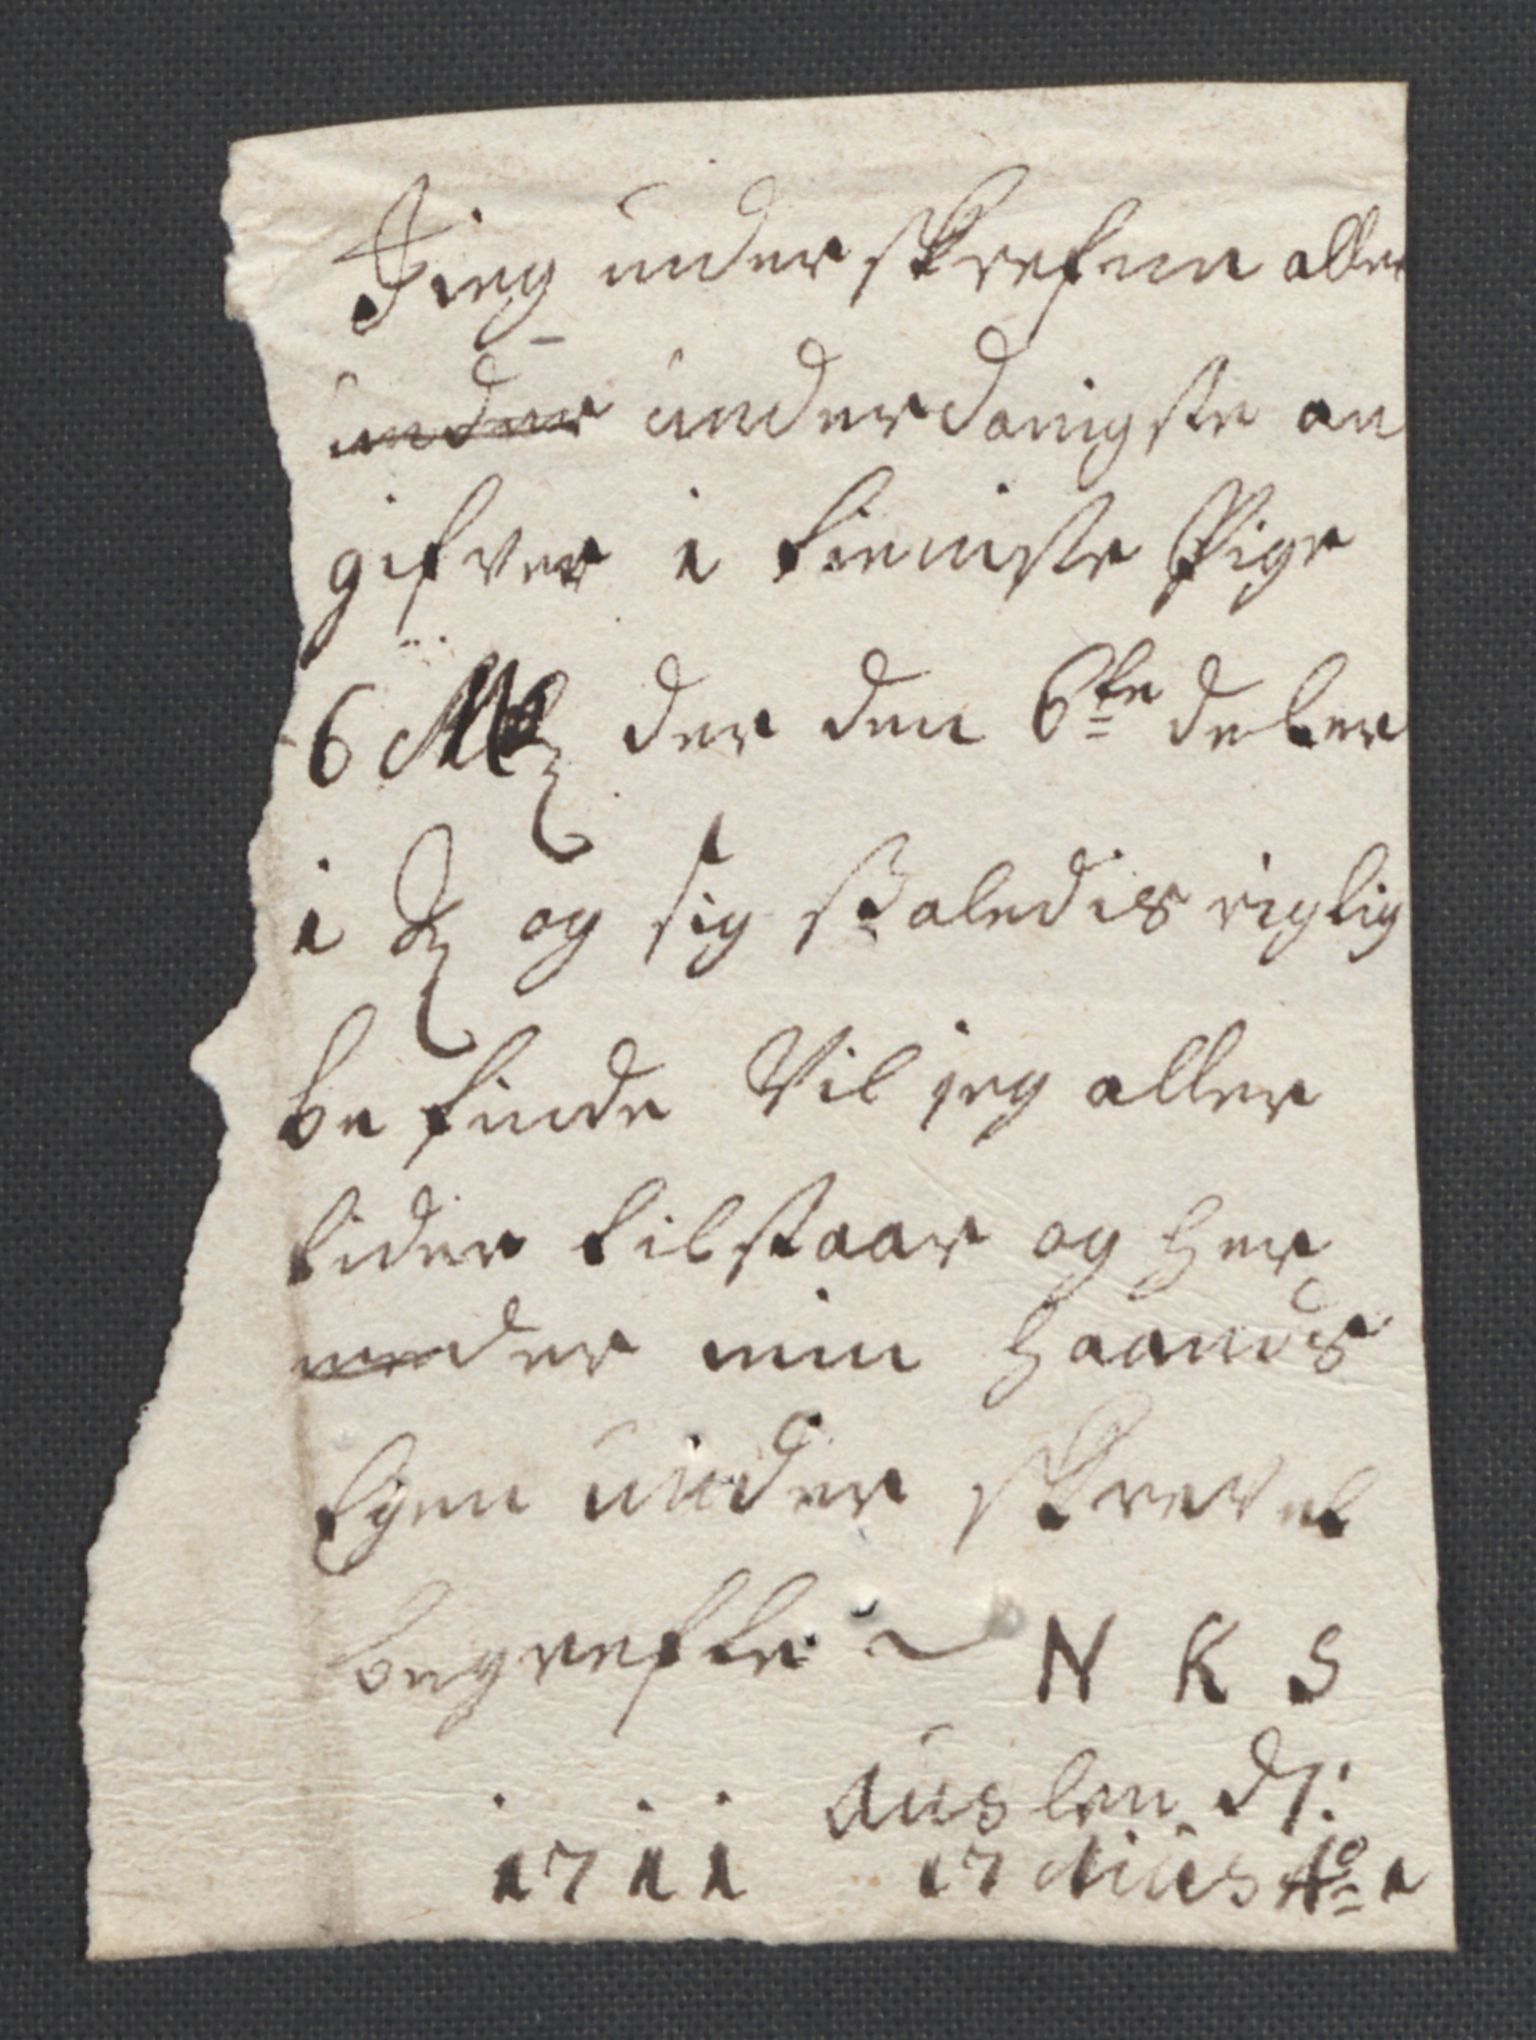 Jieg underskrefne aller
under underdanigste an
gifver 1 tieniste Pige
6 der den 6te deler
1 og sig saaledis rigtig
be finde Vil jeg aller
tider tilstaar og her
under min Haands
Egen under skrevet
begrefte N K S
Auslen d:
1711 17 Aũs Ao 1